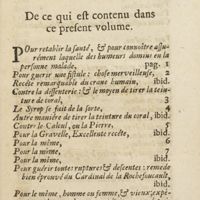 De ce qui est contenu dans
ce present volume.
POur retablir la santé, & pour connoître assu-
rément laquelle des humeurs domine en la
personne malade, pag. 1
Pour guerir une fistule : chose merveilleuse, 2
Recete remarquable du crane humain, ibid.
Contre la dissenterie : & le moyen de tirer la tein-
ture de coral, 3
Le Syrop se fait de la sorte, 4
Autre maniere de tirer la teinture du coral, ibid.
Contre le Calcul, ou la Pierre, 5
Pour la Gravelle, Excellente recete, ibid.
Pour la même, 6
Pour la même, 7
Pour la même, ibid.
Pour guérir toutes ruptures & descentes : remede
bien éprouvé du Cardinal de la Rochefoucault,
ibid.
Pour le même, homme ou femme, & vieux : expe-